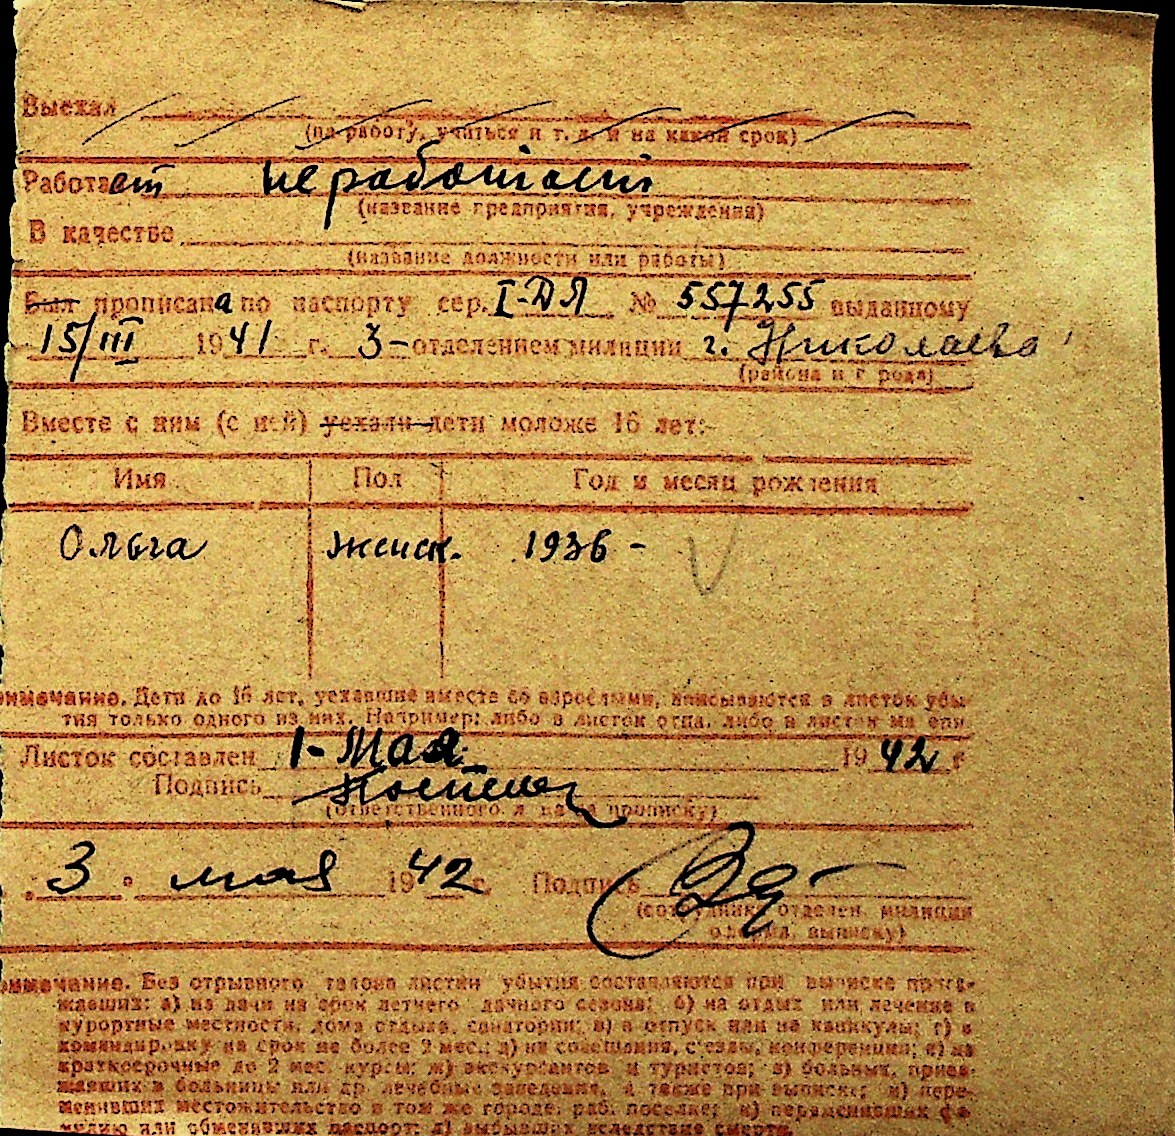 Выехал
(на работу, учиться и т. д. и на какой срок)
Работает не работает
(название предприятия, учреждения)
В качестве
(название должности или работы)
Был прописана по паспорту сер. I-ДЯ № 557255 выданному
15/III 1941 г. 3-отделением милиции г. Николаева
(района и города)
Вместе с ним (с ней) уехали дети моложе 16 лет:
Имя Пол Год и месяц рождения
Ольга женск. 1936 -
имечание. Дети до 16 лет, уехавшие вместе со взрослыми, вписываются в листок убы-
тия только одного из них. Например: либо в листок отца, либо в листок матери
Листок составлен 1-Мая 1942 г
Подпись
(ответственного л за прописку)
3 мая 1942 г. Подпись
(сотрудника отделен. милиции
выписку)
имечание. Без отрывного талона листки убытия составляются при выписке прие-
жавших: а) на дачи на срок летнего дачного сезона; б) на отдых или лечение в
курортные местности, дома отдыха, санатории; в) в отпуск или на каникулы; г) в
командировку на срок не более 2 мес.; д) на совещания, съезды, конференции; е) на
краткосрочные до 2 мес. курсы; ж) экскурсантов и туристов; з) больных, прие-
жавших в больницы или др. лечебные заведения, а также при выписке; и) пере-
менивших местожительство в том же городе, раб. поселке; к) переменивших фа-
милию или обменивших паспорт; л) выбывших вследствие смерти.